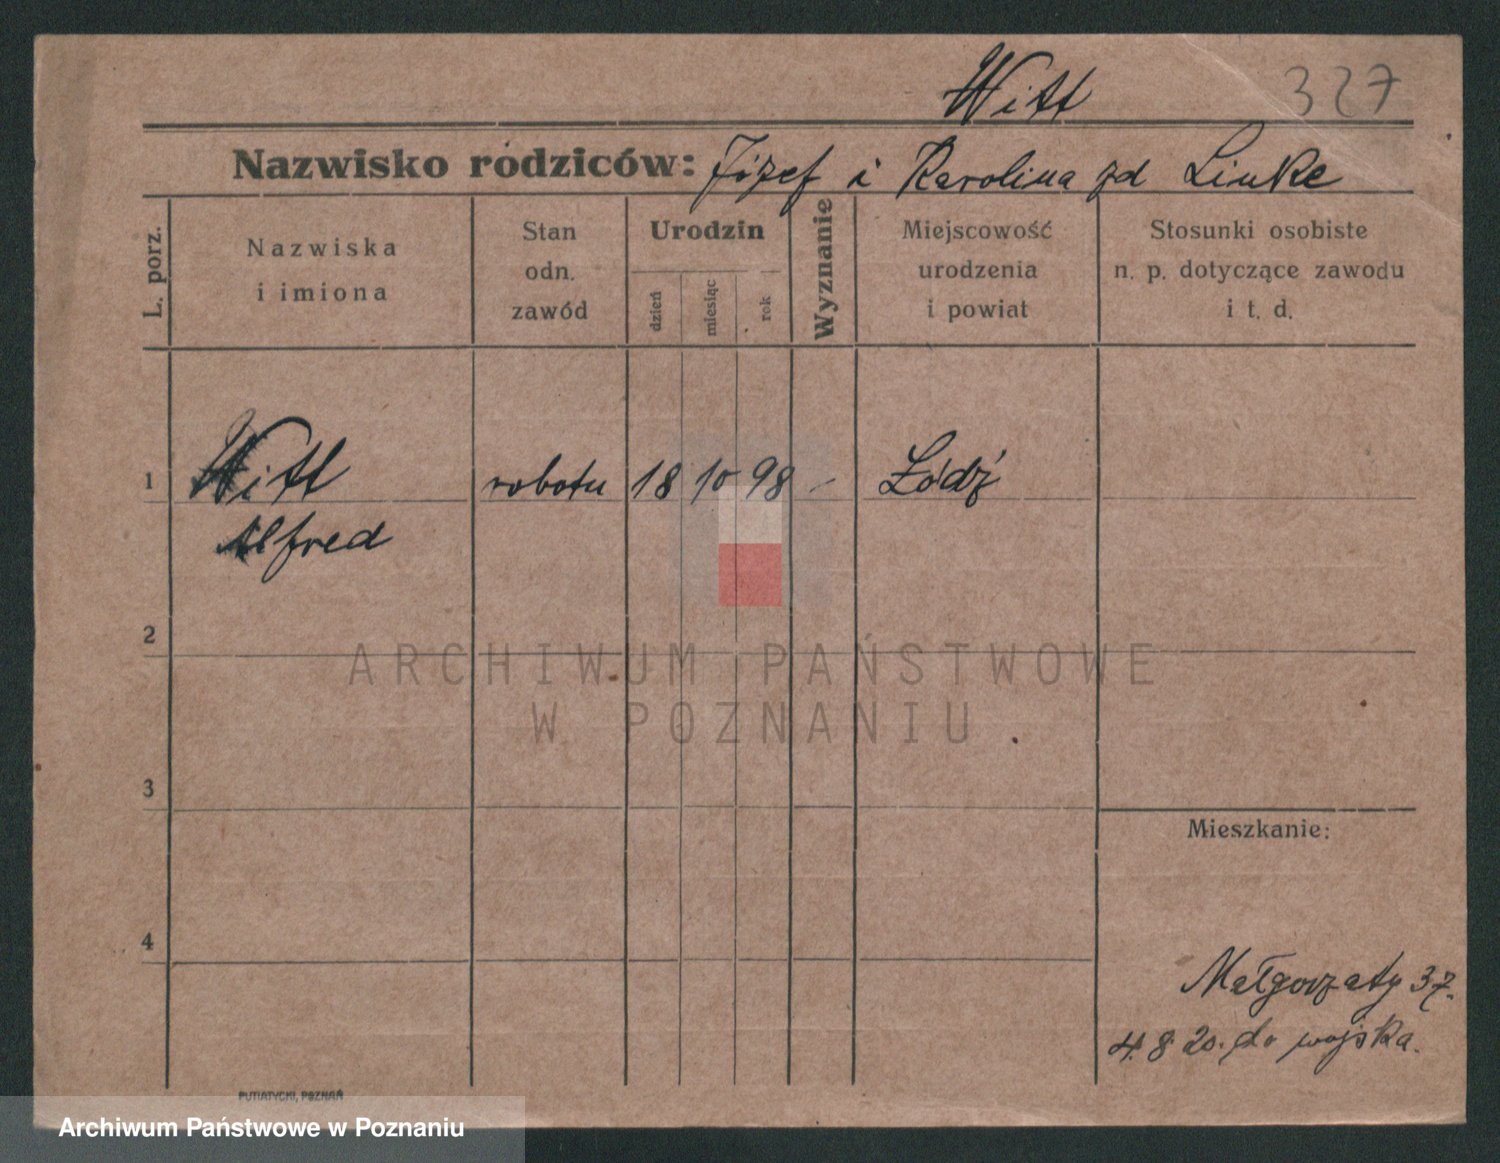 Witt 327
Nazwisko rodziców: Józef i Karolina zd Linke
L. porz.
Nazwiska
i imiona
Stan
odn.
zawód
Urodzin
dzień
miesiąc
rok
Wyznanie
Miejscowość
urodzenia
i powiat
Stosunki osobiste
n. p. dotyczące zawodu
i t. d.
1 Witt robotn 18 10 98 - Łódź
Alfred
2
3
Mieszkanie:
4
Małgorzaty 37.
4.8 20. do wojska.
PUTIATYCKI, POZNAŃ
ARCHIWUM PAŃSTWOWE
W POZNANIU
Archiwum Państwowe w Poznaniu